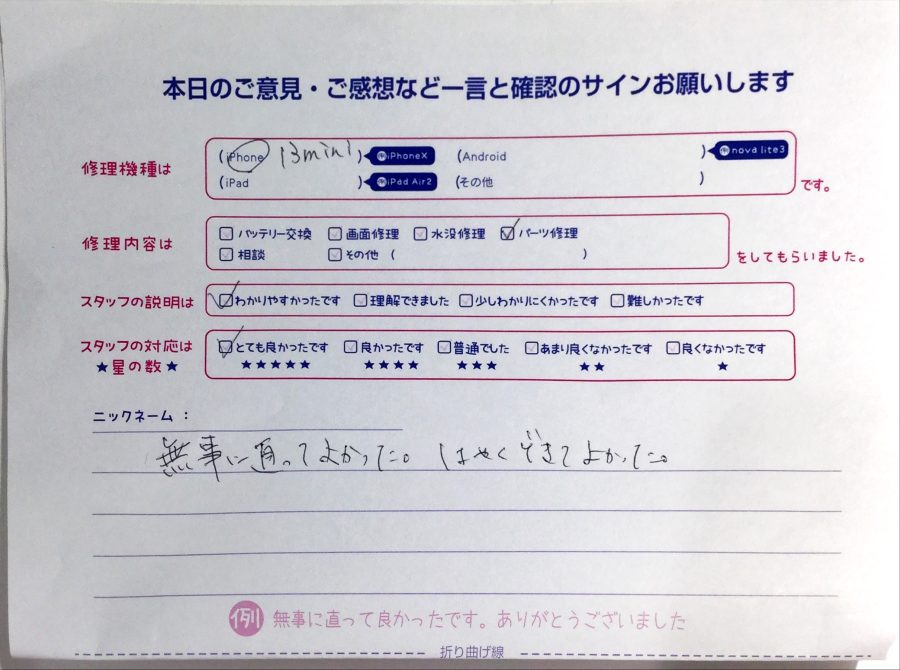 本日のご意見・ご感想など一言と確認のサインお願いします
修理機種は
(iPhone 13mini ) 例iPhoneX (Android ) 例nova lite3
(iPad ) 例iPad Air2 (その他 )
です。
修理内容は
バッテリー交換 画面修理 水没修理 パーツ修理
相談 その他 ( )
をしてもらいました。
スタッフの説明は
わかりやすかったです 理解できました 少しわかりにくかったです 難しかったです
スタッフの対応は
★星の数★
とても良かったです 良かったです 普通でした あまり良くなかったです 良くなかったです
★★★★★ ★★★★ ★★★ ★★ ★
ニックネーム：
無事に直ってよかった。はやくできてよかった。
例 無事に直って良かったです。ありがとうございました
折り曲げ線